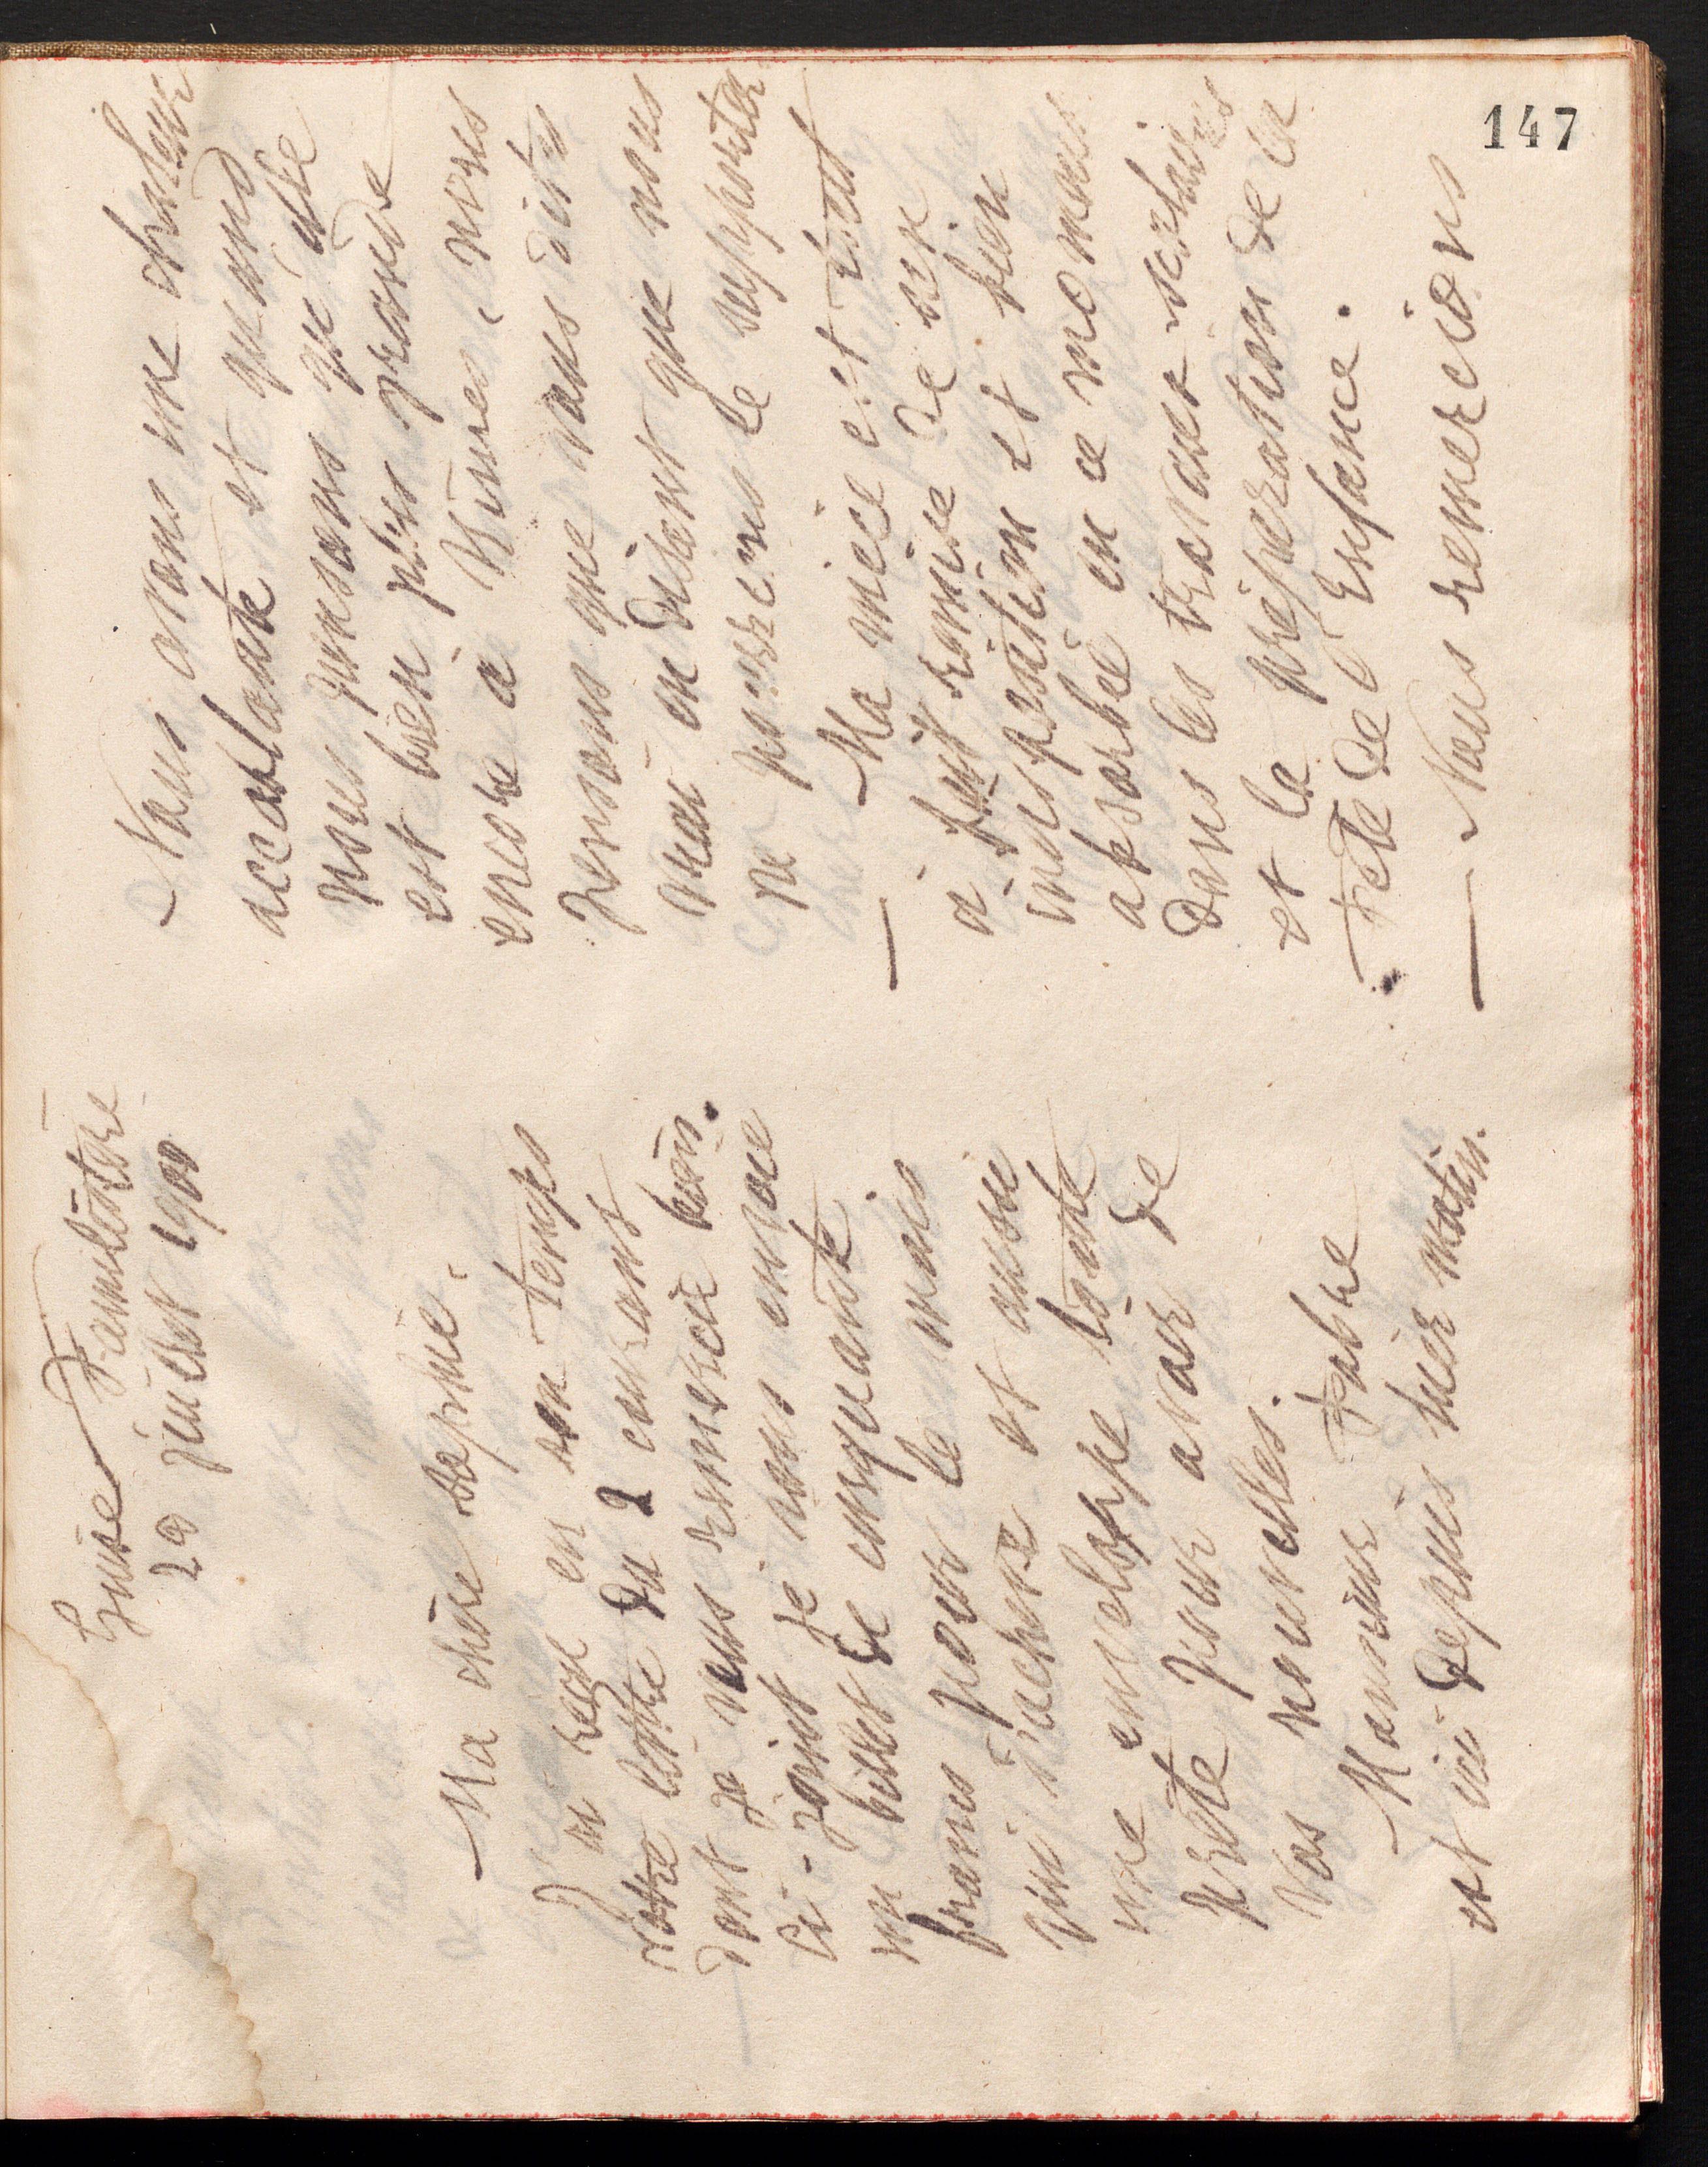 147
Guise Familistère
29 juillet 1900
Ma chère Sophie,
J'ai reçu en son temps
votre lettre du 2 courant
dont je vous remercie bien.
Ci-joint je vous envoie
un billet de cinquante
francs pour le mois
qui s'achève et aussi
une enveloppe toute
prête pour avoir de
vos nouvelles.
Monsieur Fabre
est ici depuis hier matin.
Nous avons une chaleur
accablante et quand
nous pensons qu'elle
est bien plus grande
encore à Nîmes, nous
pensons que vous dites
vrai en disant que nous
ne pourrions le supporter.
Ma nièce est tout
à fait remise de son
indisposition et bien
absorbée en ce moment
dans les travaux scolaires
et la préparation de la
Fête de l'Enfance.
Nous remercions